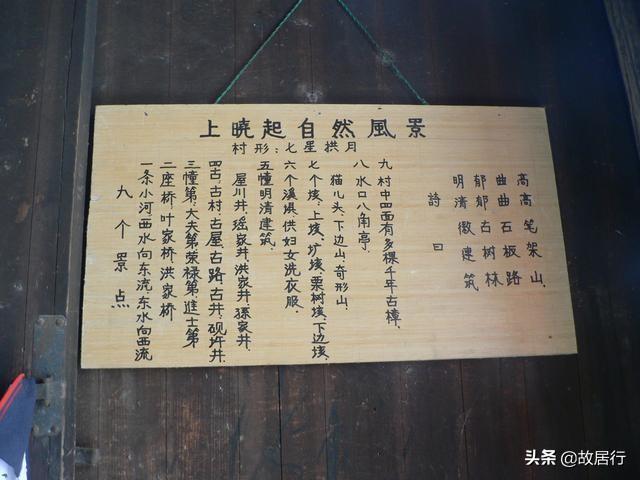 上曉起自然風景
村形:七星拱月
九个景点
一条小河西水向东流,东水向西流
二座桥,叶家桥,洪家桥
三幢第.大夫第.荣禄第.進士第
四古,古村,古屋,古路,古井,砚圩井.
屋川井.瑶家井.洪家井.孫家井.
五幢明清建筑.
六个溪埧供妇女洗衣服.
七个垓.上垓.圹垓.栗树垓.下边垓.
猫儿头.下边山.奇形山.
八 水口八角亭.
九 村中四面有多棵千年古樟.
詩曰
明清徽建筑
郁郁古树林
曲曲石板路
高高笔架山.
头条 @故居行